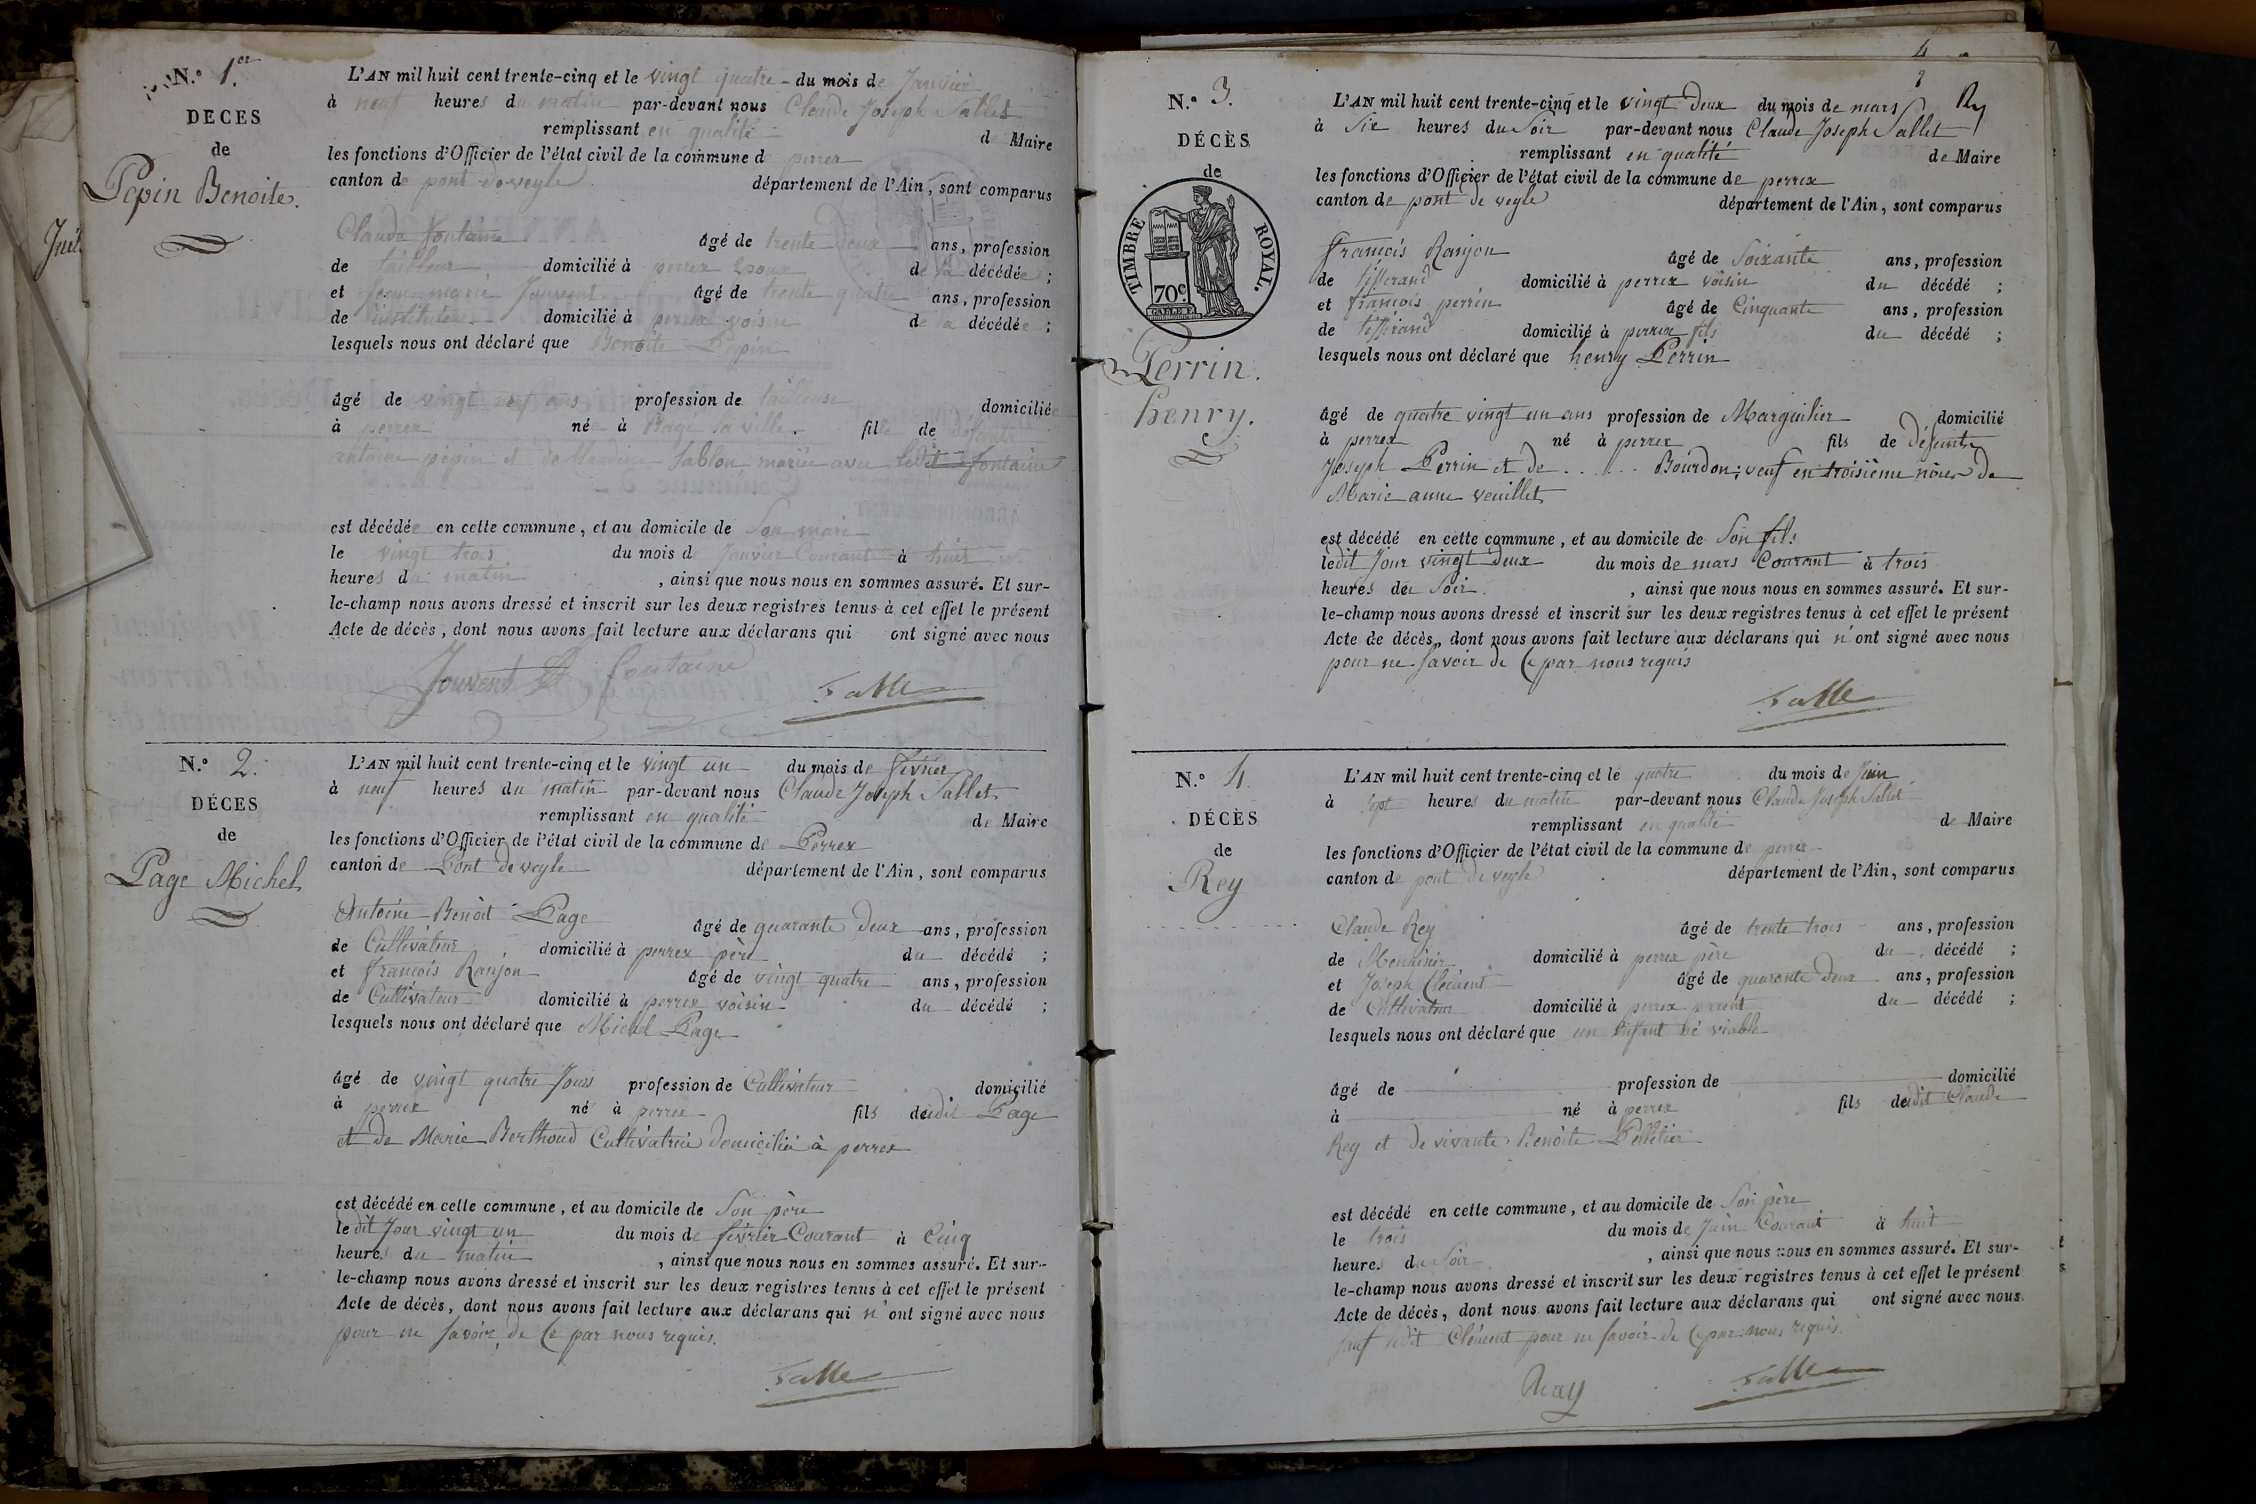 N.o 1.er
DECES
de
Pepin Benoite.
L'AN mil huit cent trente-cinq et le vingt quatre du mois de Janvier
à neuf heures du matin par-devant nous Claude Joseph Sallet
remplissant en qualité de Maire
les fonctions d'Officier de l'état civil de la commune d perrex
canton de pont de veyle département de l'Ain, sont comparus
Claude fontaine âgé de trente deux ans, profession
de tailleur domicilié à perrex Epoux de la décédée ;
et Jean marie Jouvent âgé de trente quatre ans, profession
de instituteur domicilié à perrex voisin de la décédée ;
lesquels nous ont déclaré que Benoite Pepin
âgé de vingt neuf ans profession de tailleuse domiciliée
à perrex née à Bagé la ville. fille de défunt
antoine pepin et de Sablon mariée avec ledit fontaine
est décédée en cette commune, et au domicile de Son mari
le vingt trois du mois d Janvier Courant à huit
heures du matin , ainsi que nous nous en sommes assuré. Et sur-
le-champ nous avons dressé et inscrit sur les deux registres tenus à cet effet le présent
Acte de décès, dont nous avons fait lecture aux déclarans qui ont signé avec nous
Jouvent fontaine
Salle
N.o 2.
DÉCES
de
Page Michel
L'AN mil huit cent trente-cinq et le vingt un du mois de février
à neuf heures du matin par-devant nous Claude Joseph Sallet
remplissant en qualité de Maire
les fonctions d'Officier de l'état civil de la commune de Perrex
canton de Pont de veyle département de l'Ain, sont comparus
Antoine Benoit Page âgé de quarante deux ans, profession
de Cultivateur domicilié à perrex père du décédé ;
et francois Ranjon âgé de vingt quatre ans, profession
de Cultivateur domicilié à perrex voisin du décédé ;
lesquels nous ont déclaré que Michel Page
âgé de vingt quatre Jours profession de Cultivateur domicilié
à perrex né à perrex fils dudit Page
et de Marie Berthoud Cultivatrice domiciliée à perrex
est décédé en cette commune, et au domicile de Son père
ledit Jour vingt un du mois de février Courant à Cinq
heures du matin , ainsi que nous nous en sommes assuré. Et sur-
le-champ nous avons dressé et inscrit sur les deux registres tenus à cet effet le présent
Acte de décès, dont nous avons fait lecture aux déclarans qui n'ont signé avec nous
pour ne Savoir de Ce par nous requis.
Salle
4
N.o 3.
DÉCÈS
de
TIMBRE ROYAL.
70c
Perrin.
henry.
L'AN mil huit cent trente-cinq et le vingt deux du mois de mars Ry
à Six heures du Soir par-devant nous Claude Joseph Sallet
remplissant en qualité de Maire
les fonctions d'Officier de l'état civil de la commune de perrex
canton de pont de veyle département de l'Ain, sont comparus
francois Ranjon âgé de Soixante ans, profession
de tisserand domicilié à perrex voisin du décédé ;
et francois perrin âgé de Cinquante ans, profession
de tisserand domicilié à perrex fils du décédé ;
lesquels nous ont déclaré que henry Perrin
âgé de quatre vingt un ans profession de Marguilier domicilié
à perrex né à perrex fils de défunts
Joseph Perrin et de ..... Bourdon, veuf en troisième nôces de
Marie anne veuillet
est décédé en cette commune, et au domicile de Son fils
ledit Jour vingt deux du mois de mars Courant à trois
heures du Soir. , ainsi que nous nous en sommes assuré. Et sur-
le-champ nous avons dressé et inscrit sur les deux registres tenus à cet effet le présent
Acte de décès, dont nous avons fait lecture aux déclarans qui n'ont signé avec nous
pour ne Savoir de Ce par nous requis
Salle
N.o 4.
DÉCÈS
de
Rey
L'AN mil huit cent trente-cinq et le quatre du mois de Juin
à Sept heures du matin par-devant nous Claude Joseph Sallet
remplissant en qualité de Maire
les fonctions d'Officier de l'état civil de la commune de perrex
canton de pont de veyle département de l'Ain, sont comparus
Claude Rey âgé de trente trois ans, profession
de Menuisier domicilié à perrex père du décédé ;
et Joseph Clément âgé de quarante deux ans, profession
de Cultivateur domicilié à perrex parent du décédé ;
lesquels nous ont déclaré que un Enfant né viable
âgé de profession de domicilié
à né à perrex fils dudit Claude
Rey et de vivante Benoite Pelletier
est décédé en cette commune, et au domicile de Son père
le trois du mois de Juin Courant à huit
heures du Soir , ainsi que nous nous en sommes assuré. Et sur-
le-champ nous avons dressé et inscrit sur les deux registres tenus à cet effet le présent
Acte de décès, dont nous avons fait lecture aux déclarans qui ont signé avec nous
sauf ledit Clément pour ne Savoir de Ce par nous requis.
Ray Salle